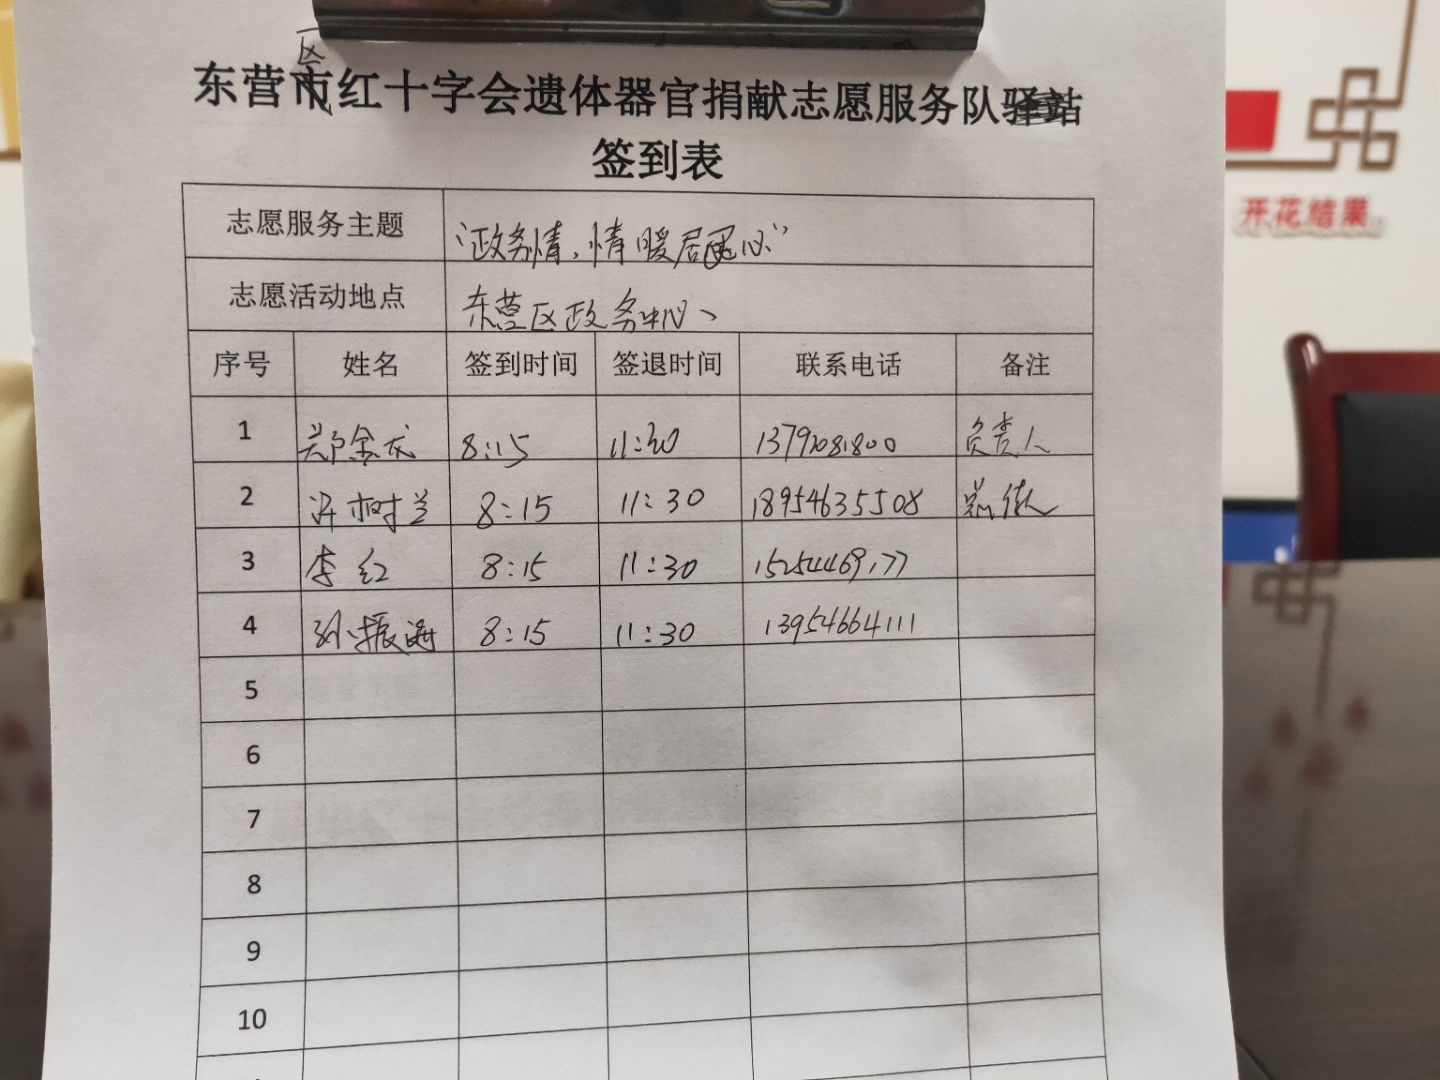 区
东营市红十字会遗体器官捐献志愿服务队驿站
签到表
志愿服务主题 “政务情,情暖居民心”
志愿活动地点 东营区政务中心
序号 姓名 签到时间 签退时间 联系电话 备注
1 郑金龙 8:15 11:30 负责人
2 许树兰 8:15 11:30 18954635508
3 李红 8:15 11:30 15254469177
4 孙振 8:15 11:30 13954664111
5
6
7
8
9
10
开花结果